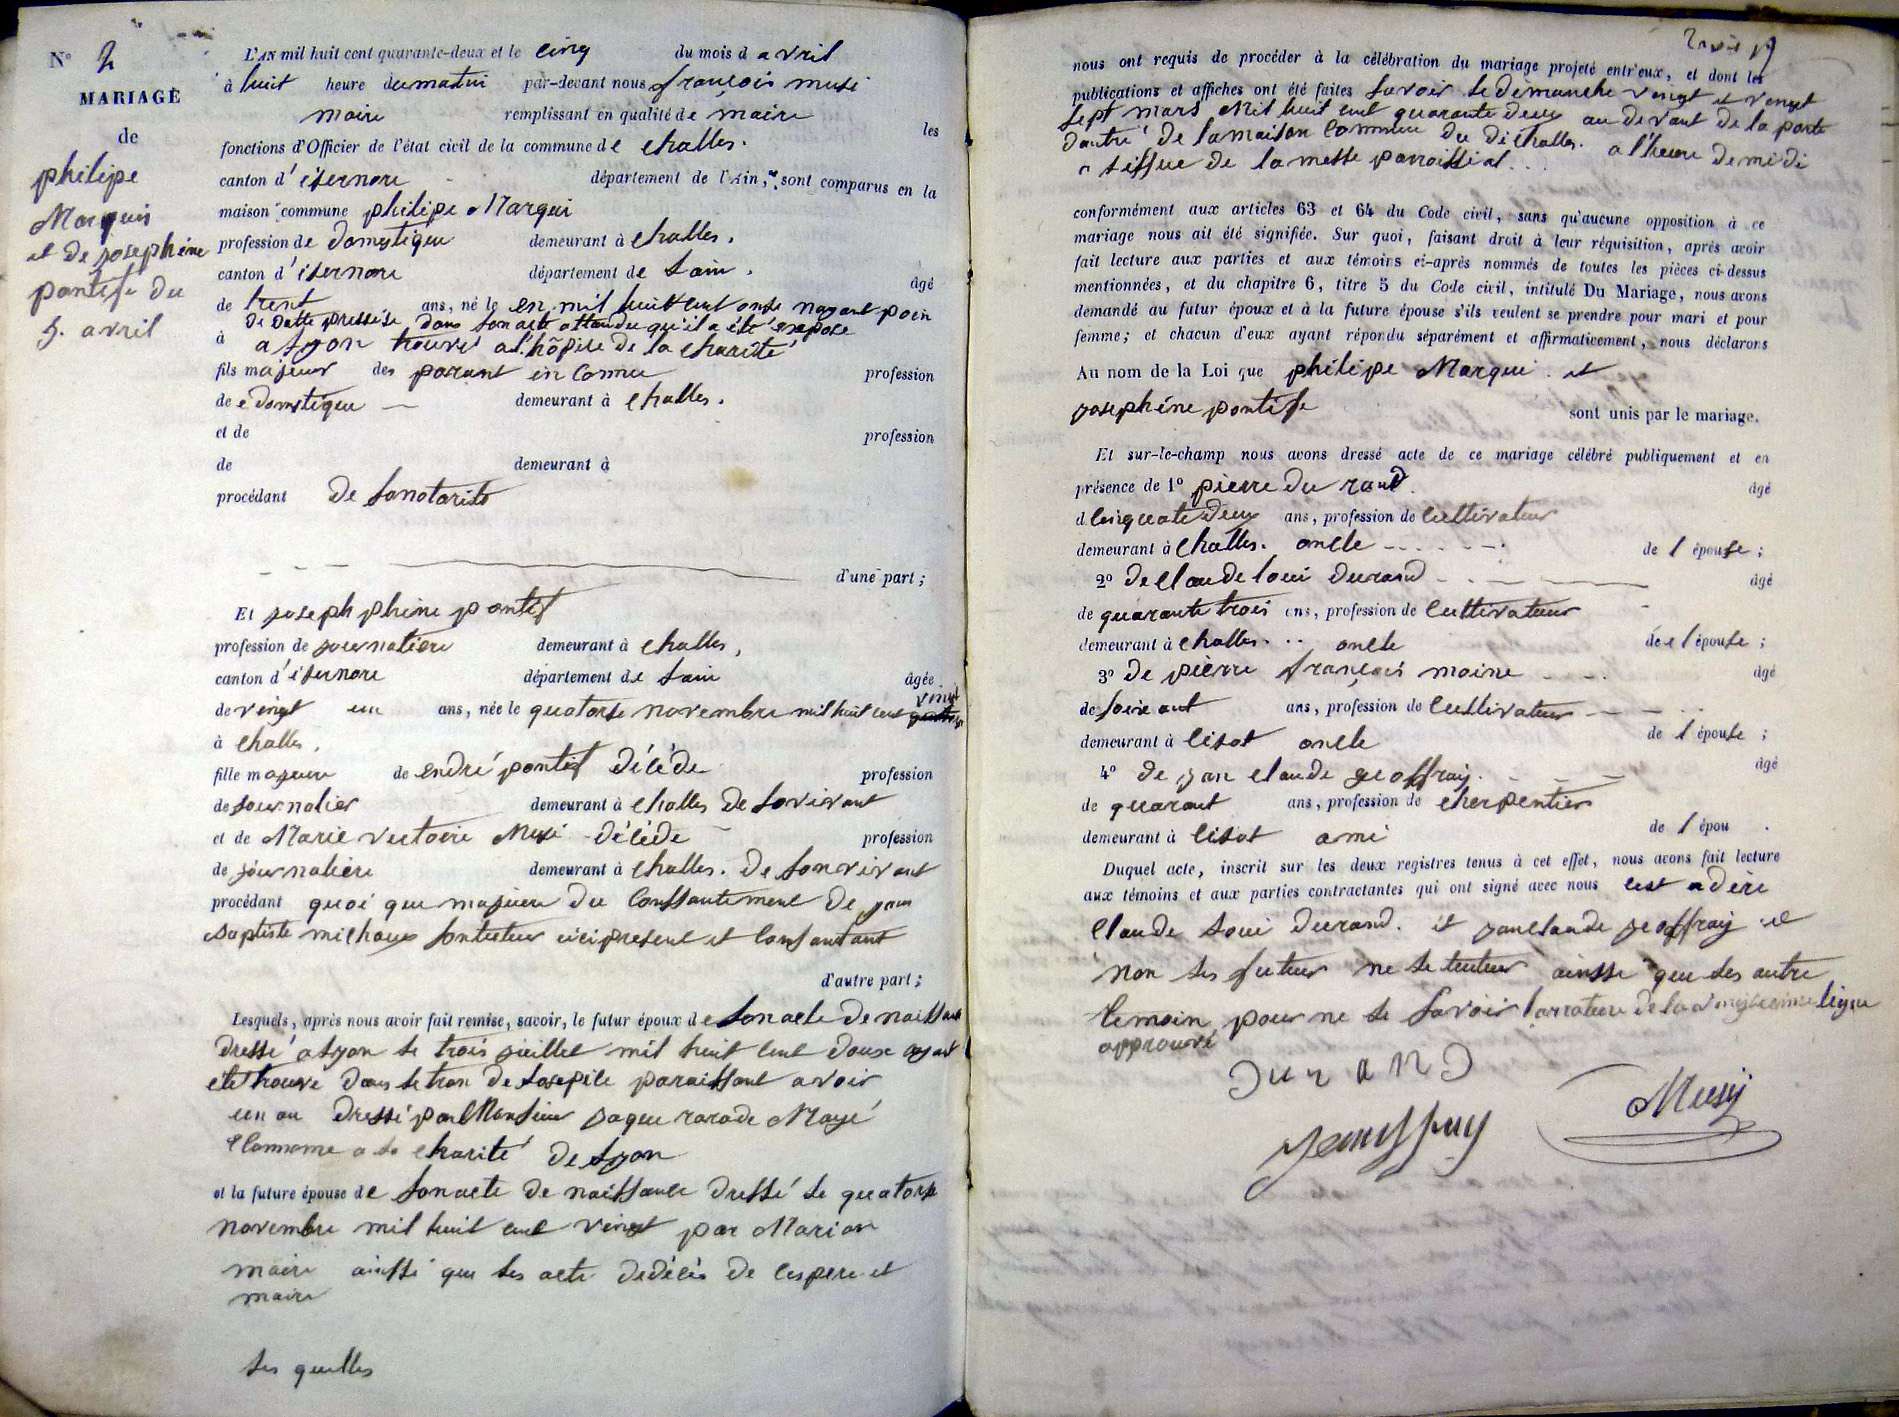 N° 2
MARIAGE
de
philipe
Marquis
et de josephine
pontife du
5. avril
L'AN mil huit cent quarante-deux et le cinq du mois d avril
à huit heure du matin par-devant nous françois musi
maire remplissant en qualité de maire les
fonctions d'Officier de l'état civil de la commune de challes.
canton d'isernore département de l'Ain, sont comparus en la
maison commune philipe Marqui
profession de domestique demeurant à challes.
canton d'isernore département de Lain. âgé
de trent ans, né le en mil huit cent onse nayant poin
de datte pressise dans son acte attandu qu'il a été exposé
à a Lyon trouvé a l'hôpile de la charité
fils majeur des parant in connu profession
de domstique demeurant à challes.
et de profession
de demeurant à
procédant de sonotorité
d'une part;
Et josephphine pontif
profession de journaliere demeurant à challes,
canton d'isernore département de Lain âgée
de vingt un ans, née le quatorse novembre mil huit cent vint
à challes.
fille majeure de endré pontif décédé profession
de journalier demeurant à challes de sovivant
et de Marie victoire Musi décédé profession
de journaliere demeurant à challes. de sonvivant
procédant quoi que majeure du consantement de jean
Baptiste michaus sontuteur icipresent et consantant
d'autre part;
Lesquels, après nous avoir fait remise, savoir, le futur époux de son acte de naissance
dressé a Lyon le trois juillet mil huit cent douse ayant
été trouvé dans le tron de Losepile paraissant avoir
un an dressé par Monsieur jaque
a la charité de Lyon
et la future épouse de son acte de naissance dressé le quatorse
novembre mil huit cent vingt par Marion
maire ainssi que les acte dedécès de Lespere et
maire
Les quelles
nous ont requis de procéder à la célébration du mariage projeté entr'eux, et dont les
publications et affiches ont été faites Savoir Le dimanche vingt et vingt
sept mars Mil huit cent quarante deux au devant de la porte
dantré de lamaison commune du dichalles. a l'heure de midi
a Lissue de la messe parroissial...
conformément aux articles 63 et 64 du Code civil, sans qu'aucune opposition à ce
mariage nous ait été signifiée. Sur quoi, faisant droit à leur réquisition, après avoir
fait lecture aux parties et aux témoins ci-après nommés de toutes les pièces ci-dessus
mentionnées, et du chapitre 6, titre 5 du Code civil, intitulé Du Mariage, nous avons
demandé au futur époux et à la future épouse s'ils veulent se prendre pour mari et pour
femme; et chacun d'eux ayant répondu séparément et affirmativement, nous déclarons
Au nom de la Loi que philipe Marqui et
josephine pontife sont unis par le mariage.
Et sur-le-champ nous avons dressé acte de ce mariage célébré publiquement et en
présence de 1° pierre du rand âgé
d cinquate deux ans, profession de cultivateur
demeurant à challes. oncle de l épouse;
2° de claude loui durand âgé
de quarante trois ans, profession de cultivateur
demeurant à challes. oncle de l épouse;
3° de pierre françois moine âgé
de soixant ans, profession de cultivateur
demeurant à cisot oncle de l épouse;
4° de jan claude geoffray. âgé
de quarant ans, profession de cherpentier
demeurant à cisot ami de l épou .
Duquel acte, inscrit sur les deux registres tenus à cet effet, nous avons fait lecture
aux témoins et aux parties contractantes qui ont signé avec nous cest adire
Claude Loui durand. et jan claude jeoffray et
non les futur ne le tuteur ainssi que les autre
temoin pour ne le savoir larrature de la vingtieme ligne
approuvé
DURAND
Musy